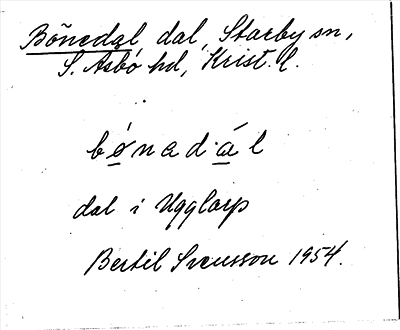 Bönedal dal, Starby sn,
S. Åsbo hd, Krist. l.
bǿnadál
dal i Ugglarp
Bertil Svensson 1954.